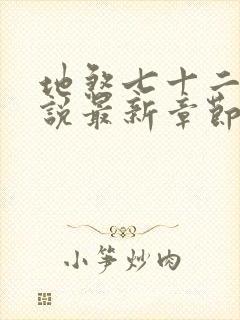 地煞七十二
說最新章節
小笋炒肉